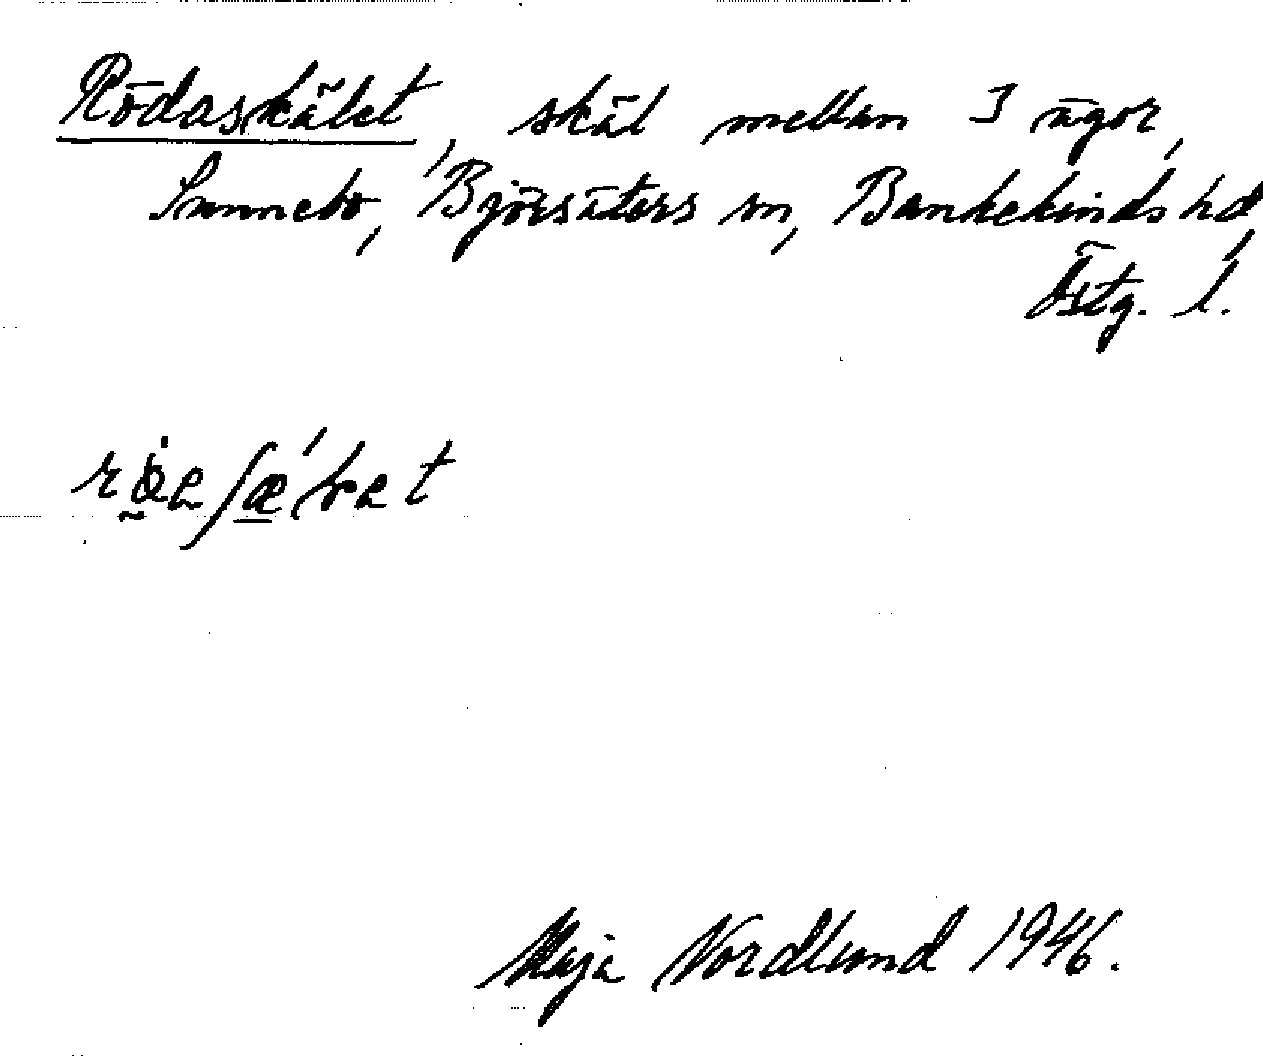 Rödaskälet, skäl mellan 3 ägor,
Sunnebo, Björsäters sn, Bankekinds hd,
Östg. l.
Maja Nordlund 1946.